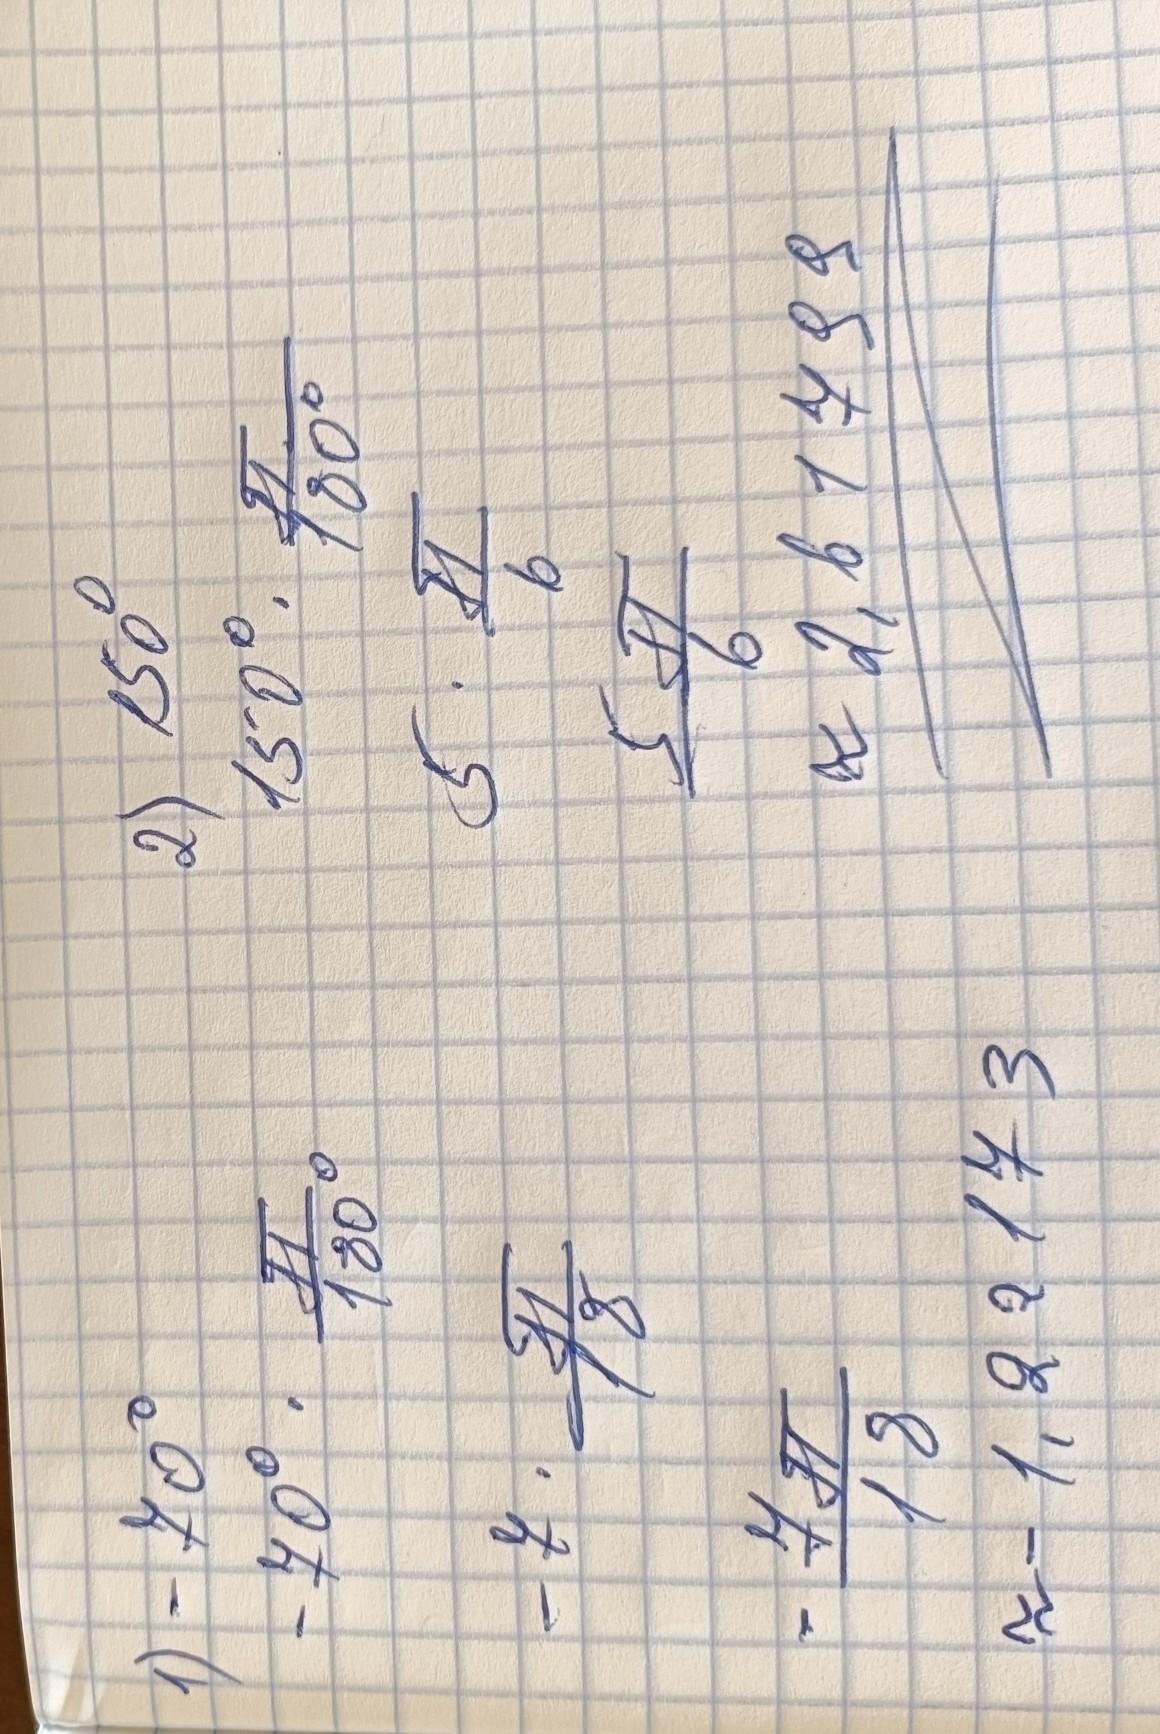 1) - 70°
- 70° · π/180°
- 7 · π/18
- 7π/18
≈ - 1,22173
2) 150°
150° · π/180°
5 · π/6
5π/6
≈ 2,61799